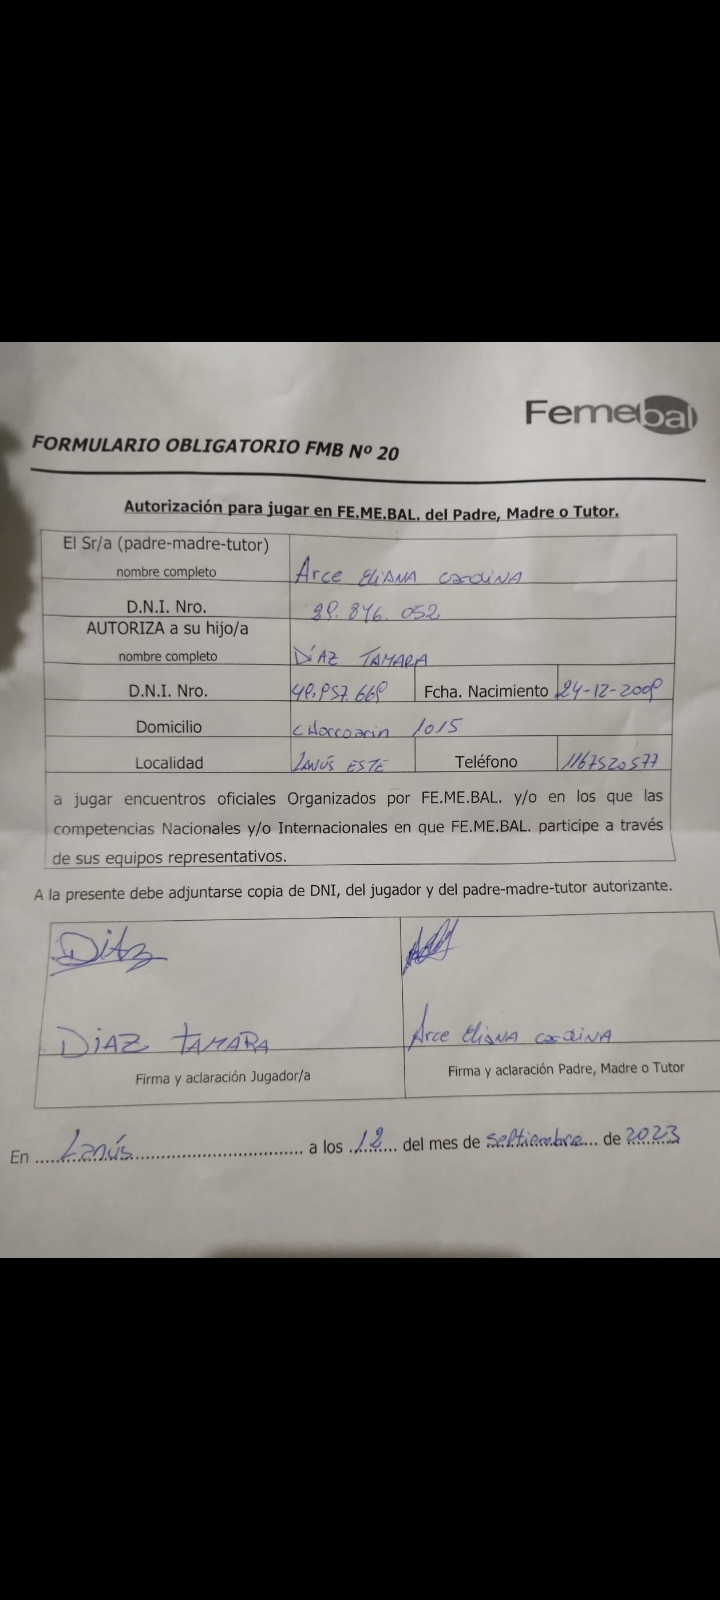 Femebal
FORMULARIO OBLIGATORIO FMB Nº 20
Autorización para jugar en FE.ME.BAL. del Padre, Madre o Tutor.
El Sr/a (padre-madre-tutor)
nombre completo Arce Eliana carolina
D.N.I. Nro. 39.846.052
AUTORIZA a su hijo/a
nombre completo DíAZ TAMARA
D.N.I. Nro. 49.957.669 Fcha. Nacimiento 24-12-2009
Domicilio 1015
Localidad LANÚS ESTE Teléfono 1167520577
a jugar encuentros oficiales Organizados por FE.ME.BAL. y/o en los que las
competencias Nacionales y/o Internacionales en que FE.ME.BAL. participe a través
de sus equipos representativos.
A la presente debe adjuntarse copia de DNI, del jugador y del padre-madre-tutor autorizante.
Díaz
DíAZ TAMARA Arce Eliana carolina
Firma y aclaración Jugador/a Firma y aclaración Padre, Madre o Tutor
En Lanús a los 12 del mes de septiembre de 2023